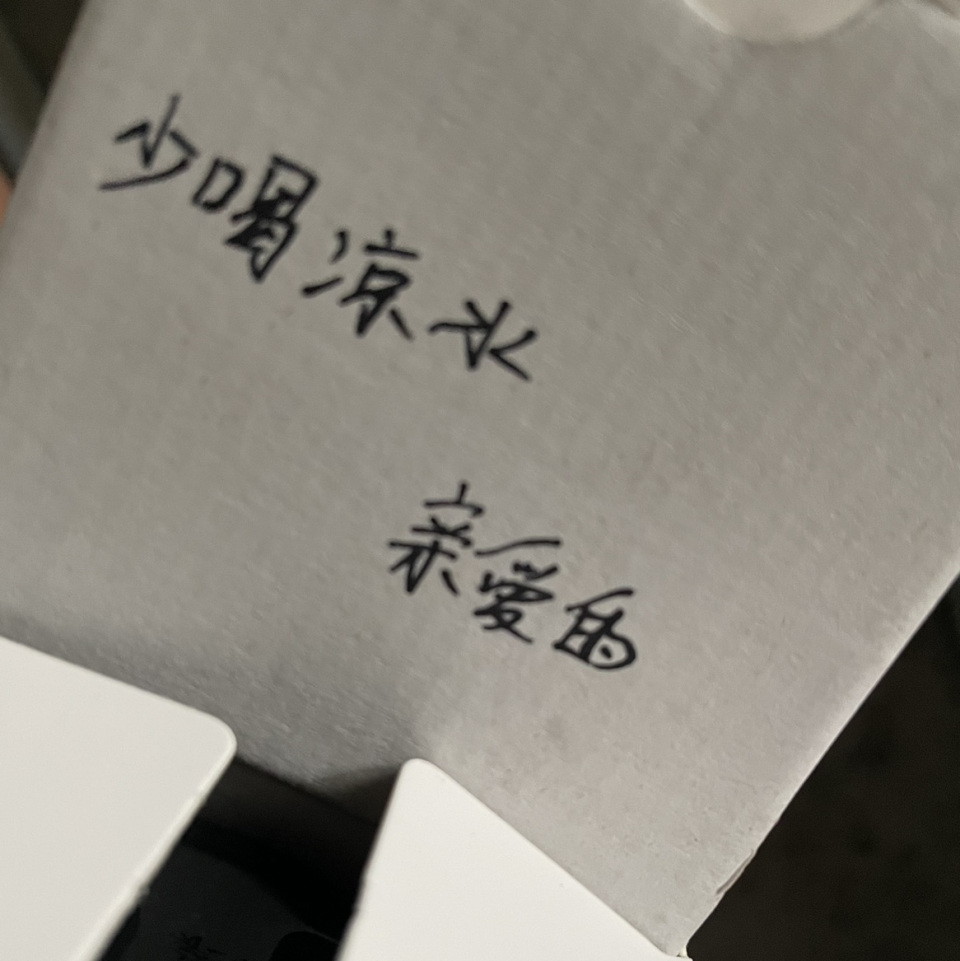 少喝凉水
亲爱的